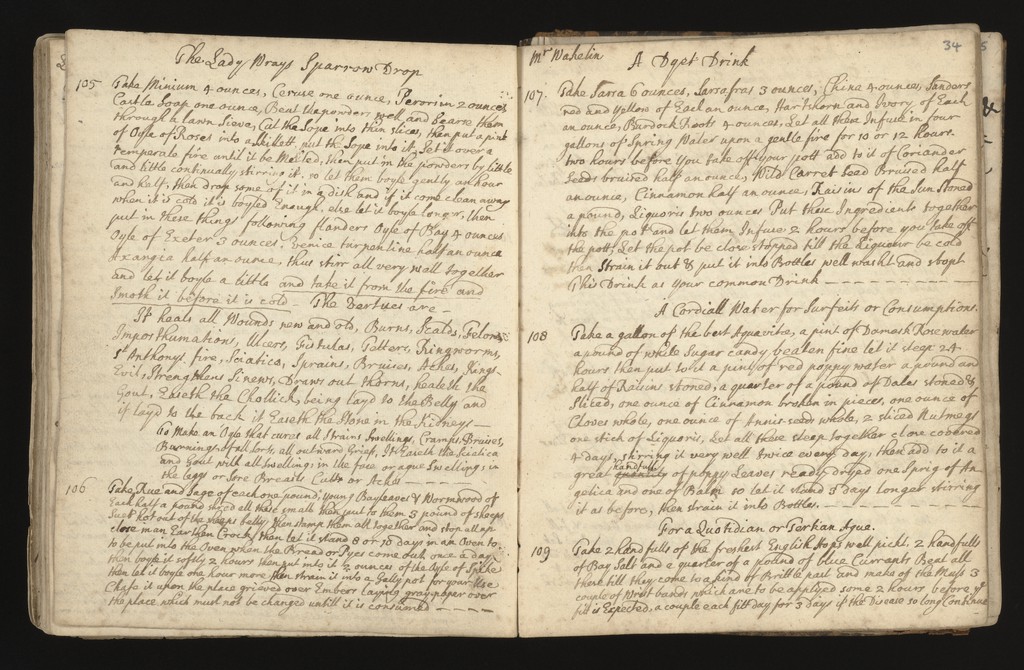 The Lady Wrays Sparrow Drop
105 Take Minium 4 ounces, Ceruse one ounce, 2 ounces
Castle Soap one ounce, Beat the powders well and Searse them
through a Lawn Sieve, Cut the Sope into thin slices, then put a pint
of Oyle of Roses into a Skillett, put the Sope into it, Set it over a
temperate fire until it be Melted, then put in the powders by little
and little continually stirring it. so let them boyle gently an hour
and half, then drop some of it in a dish and if it come clean away
when it is cold it is boyled Enough, else let it boyle longer, then
put in these things following flanders Oyle of Bay 4 ounces
Oyle of Exeter 3 ounces, Venice turpentine half an ounce
Axangia half an ounce, thus stirr all very well together
and let it boyle a little and take it from the fire and
Smoth it before it is cold – The Vertues are –
It heals all Wounds new and old, Burns, Scalds, Felons
Imposthumations, Ulcers, Fistulas, Tetters, Ringworms,
St Anthonys fire, Sciatica, Sprains, Bruises, Aches, Kings-
Evil, Strengthens Sinews, Draws out thorns, healeth the
Gout, Easeth the Chollick being layd to the Belly and
if layd to the back it Easeth the Stone in the Kidneys –
to Make an Oyle that cures all Strains Swellings, Cramps, Bruises,
Burnings of all sorts, all outward Grief, It Easeth the Sciatica
and Gout with all Swellings in the face or ague Swellings in
the Leggs or Sore Breasts Cutts or Aches –
106 Take Rue and Sage of each one pound, young Bayleaves & Wormwood of
Each half a pound shred all these small then put to them 3 pound of Sheeps
Suet hot out of the sheeps belly, then stamp them all together and stop all up
close in an Earthen Crock then let it stand 8 or 10 days in an Oven to
be put into the Oven when the Bread or Pyes come out, once a day
then boyle it softly 2 hours then put into it 2 ounces of the Oyle of Spike
then let it boyle one hour more then strain it into a Gally pot for your Use
Chafe it upon the place grieved over Embers laying gray paper over
the place which must not be changed untill it is consumed – – – –
34
5
Mr Wakelin A Dyet Drink
107. Take Sarsa 6 ounces, Sarsafras 3 ounces, Chine 4 ounces, Sanders
red and yellow of Each an ounce, Hartshorn and Ivory of Each
an ounce, Burdock Roots 4 ounces. Let all these Infuse in four
gallons of Spring Water upon a gentle fire for 10 or 12 hours.
two hours before you take off your pott add to it of Coriander
Seeds bruised half an ounce, Wild Carret Seed Bruised half
an ounce, Cinnamon half an ounce, Raisins of the Sun Stoned
a pound, Liquoris two ounces Put these Ingredients together
into the pot and let them Infuse 2 hours before you take off
the pott, Let the pot be close stopped till the Liqueur be cold
then Strain it out & put it into Bottles well washt and stopt
This Drink as your common Drink – – – – – – –
A Cordiall Water for Surfeits or Consumptions.
108 Take a gallon of the best Aquavitæ, a pint of Damask Rose water
a pound of white Sugar candy beaten fine let it steep 24
hours then put to it a pint of red poppy water a pound and
half of Raisins stoned, a quarter of a pound of Dates stoned &
Sliced, one ounce of Cinnamon broken in pieces, one ounce of
Cloves whole, one ounce of Anniseeds whole, 2 sliced Nutmegs
one stick of Liquoris, Let all these steep together close covered
4 days, stirring it very well twice every day, then add to it a
great quantity handfull of poppy Leaves ready dryed one Sprig of An
gelica and one of Balm so let it stand 3 days longer stirring
it as before, then strain it into Bottles. – – – – –
For a Quotidian or Tertian Ague.
109 Take 2 handfulls of the freshest English Hops well pickt, 2 handfulls
of Bay Salt and a quarter of a pound of blue Currants Beat all
these till they come to a kind of Brittle past and make of the Mass 3
couple of Wrist bands which are to be applyed some 2 hours before ye
fitt is Expected, a couple each fitt day for 3 days if the Disease so long Continue